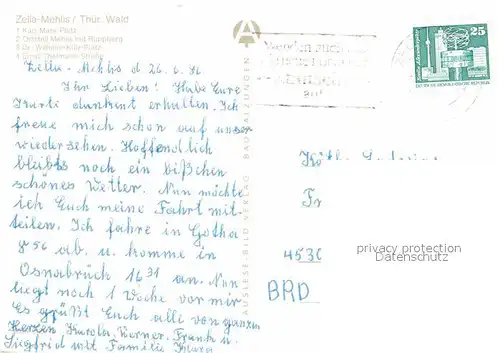 Zella-Mehlis / Thür. Wald
1 Karl-Marx-Platz
2 Ortsteil Mehlis mit Ruppberg
3 Dr.-Wilhelm-Külz-Platz
4 Ernst-Thälmann-Straße
Zella-Mehlis d 26.6.
Ihr Lieben! Habe Eure
Karte dankend erhalten. Ich
freue mich schon auf unser
wiedersehen. Hoffendlich
bleibts noch ein bißchen
schönes Wetter. Nun möchte
ich Euch meine Fahrt mit-
teilen. Ich fahre in Gotha
8 56 ab. u. komme in
Osnabrück 16 31 an. Nun
liegt noch 1 Woche vor mir
Es grüßt Euch alle von ganzen
Herzen Karola, Werner, Frank u.
Siegfried mit Familie
AUSLESE-BILD-VERLAG BAD SALZUNGEN
25
Fr
4530
BRD
privacy protection
Datenschutz